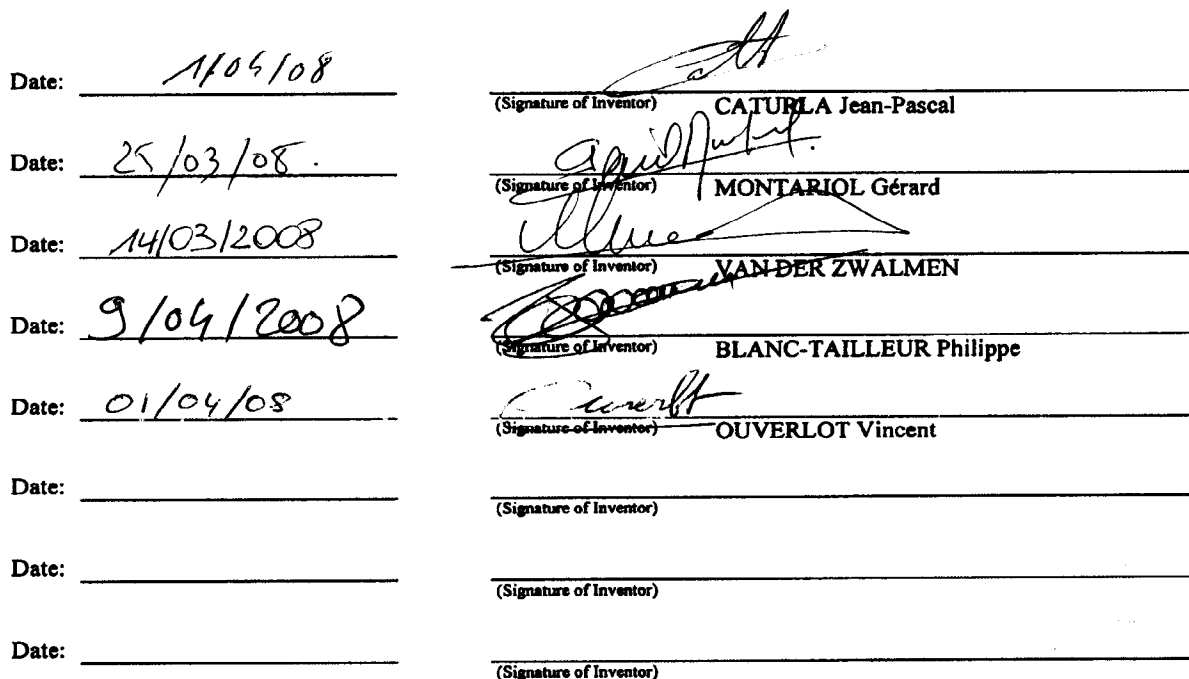 Date: 1/04/08
(Signature of Inventor) CATURLA Jean-Pascal
Date: 25/03/08.
(Signature of Inventor) MONTARIOL Gérard
Date: 14/03/2008
(Signature of Inventor) VAN DER ZWALMEN
Date: 9/04/2008
(Signature of Inventor) BLANC-TAILLEUR Philippe
Date: 01/04/08
Ouverlot
(Signature of Inventor) OUVERLOT Vincent
Date:
(Signature of Inventor)
Date:
(Signature of Inventor)
Date:
(Signature of Inventor)